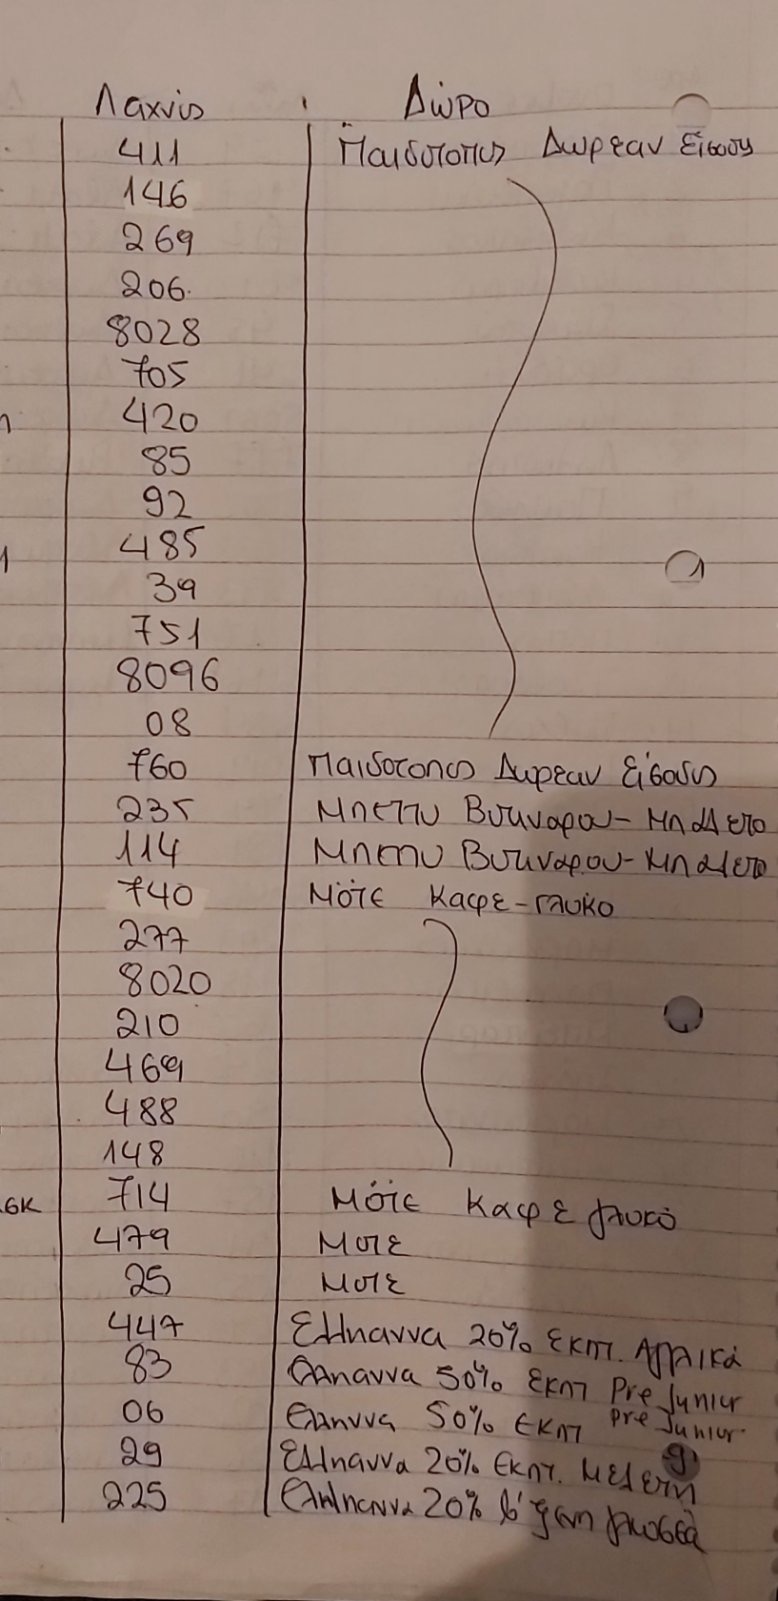 Λαχνός Δώρο
411 Παιδότοπος Δωρεάν Είσοδος
146
269
206
8028
705
420
85
92
485
39
751
8096
08
760 Παιδότοπος Δωρεάν Είσοδος
235 Μπέττυ - Μπαλέτο
114 Μπέττυ - Μπαλέτο
740 Μότε Καφέ - Γλυκό
277
8020
210
469
488
148
6K 714 Μότε Καφέ γλυκό
479 Μοτε
25 Μοτε
447 Ελληαννα 20% εκπτ. Αγγλικά
83 50% εκπτ Pre Junior
06 50% εκπτ pre Junior
29 Ελληαννα 20% Εκπτ. Μελέτη
225 20% β' ξένη γλώσσα